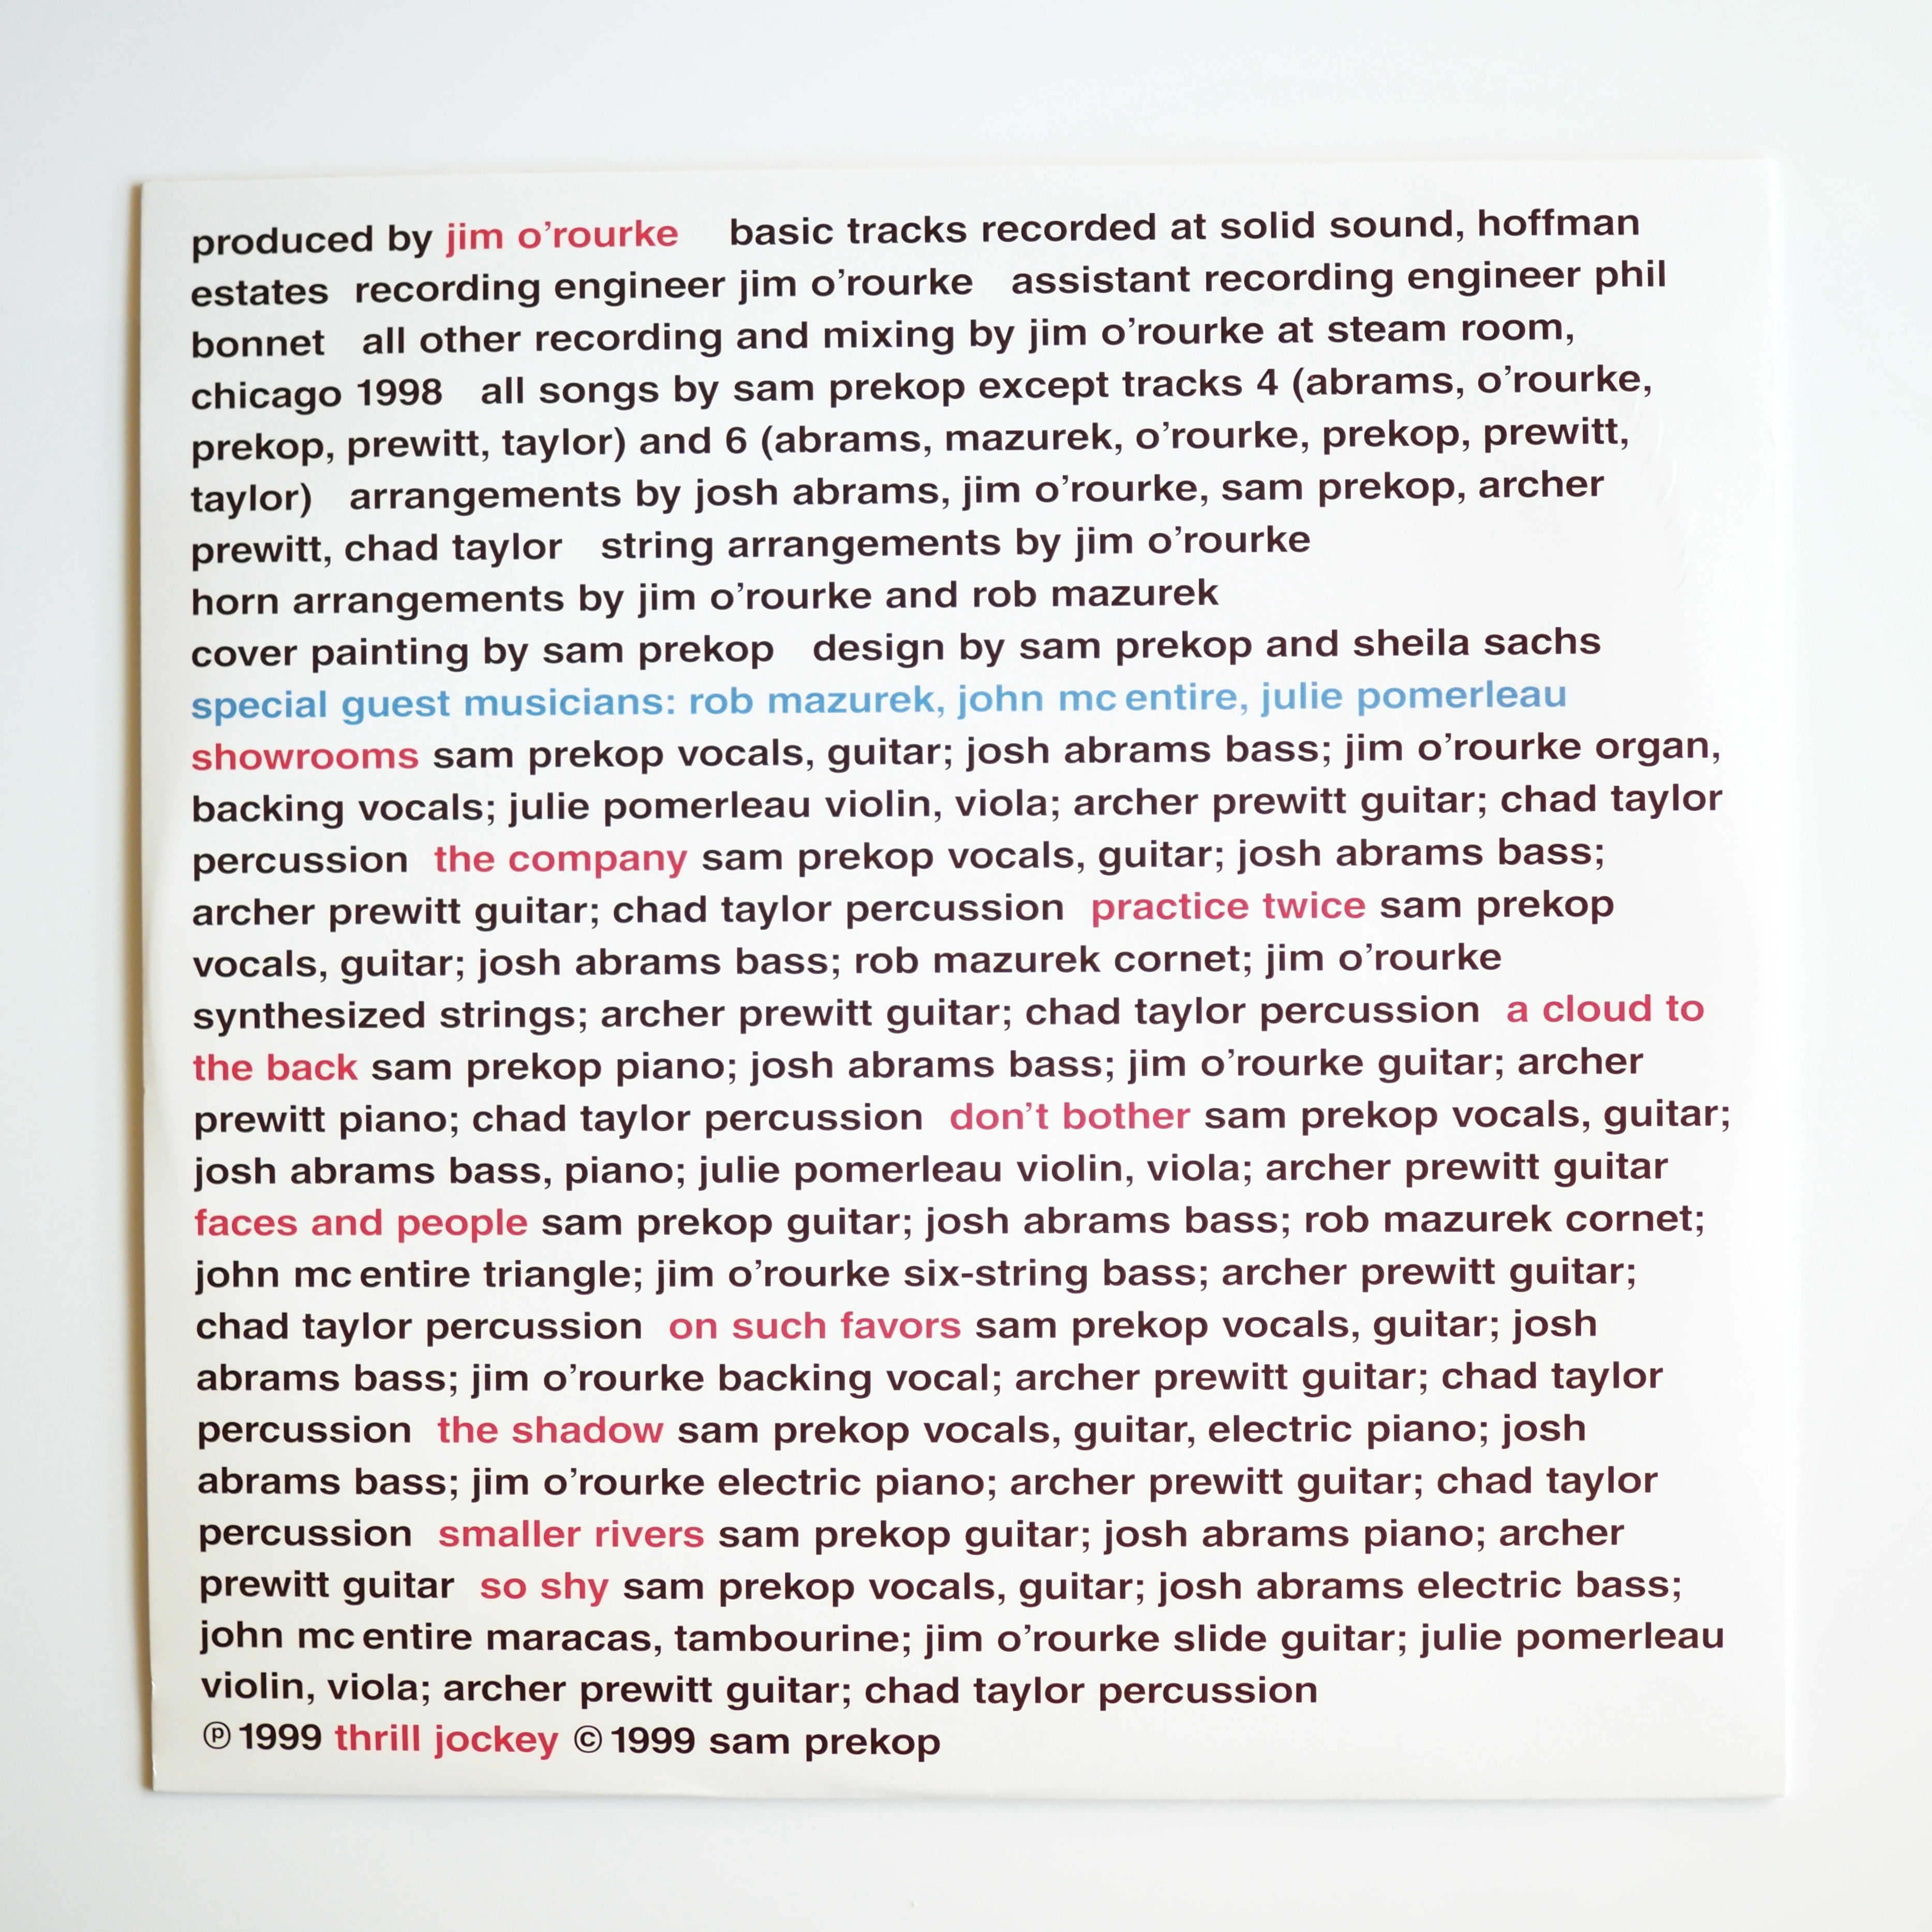 produced by jim o’rourke basic tracks recorded at solid sound, hoffman
estates recording engineer jim o’rourke assistant recording engineer phil
bonnet all other recording and mixing by jim o’rourke at steam room,
chicago 1998 all songs by sam prekop except tracks 4 (abrams, o’rourke,
prekop, prewitt, taylor) and 6 (abrams, mazurek, o’rourke, prekop, prewitt,
taylor) arrangements by josh abrams, jim o’rourke, sam prekop, archer
prewitt, chad taylor string arrangements by jim o’rourke
horn arrangements by jim o’rourke and rob mazurek
cover painting by sam prekop design by sam prekop and sheila sachs
special guest musicians: rob mazurek, john mc entire, julie pomerleau
showrooms sam prekop vocals, guitar; josh abrams bass; jim o’rourke organ,
backing vocals; julie pomerleau violin, viola; archer prewitt guitar; chad taylor
percussion the company sam prekop vocals, guitar; josh abrams bass;
archer prewitt guitar; chad taylor percussion practice twice sam prekop
vocals, guitar; josh abrams bass; rob mazurek cornet; jim o’rourke
synthesized strings; archer prewitt guitar; chad taylor percussion a cloud to
the back sam prekop piano; josh abrams bass; jim o’rourke guitar; archer
prewitt piano; chad taylor percussion don’t bother sam prekop vocals, guitar;
josh abrams bass, piano; julie pomerleau violin, viola; archer prewitt guitar
faces and people sam prekop guitar; josh abrams bass; rob mazurek cornet;
john mc entire triangle; jim o’rourke six-string bass; archer prewitt guitar;
chad taylor percussion on such favors sam prekop vocals, guitar; josh
abrams bass; jim o’rourke backing vocal; archer prewitt guitar; chad taylor
percussion the shadow sam prekop vocals, guitar, electric piano; josh
abrams bass; jim o’rourke electric piano; archer prewitt guitar; chad taylor
percussion smaller rivers sam prekop guitar; josh abrams piano; archer
prewitt guitar so shy sam prekop vocals, guitar; josh abrams electric bass;
john mc entire maracas, tambourine; jim o’rourke slide guitar; julie pomerleau
violin, viola; archer prewitt guitar; chad taylor percussion
℗ 1999 thrill jockey © 1999 sam prekop